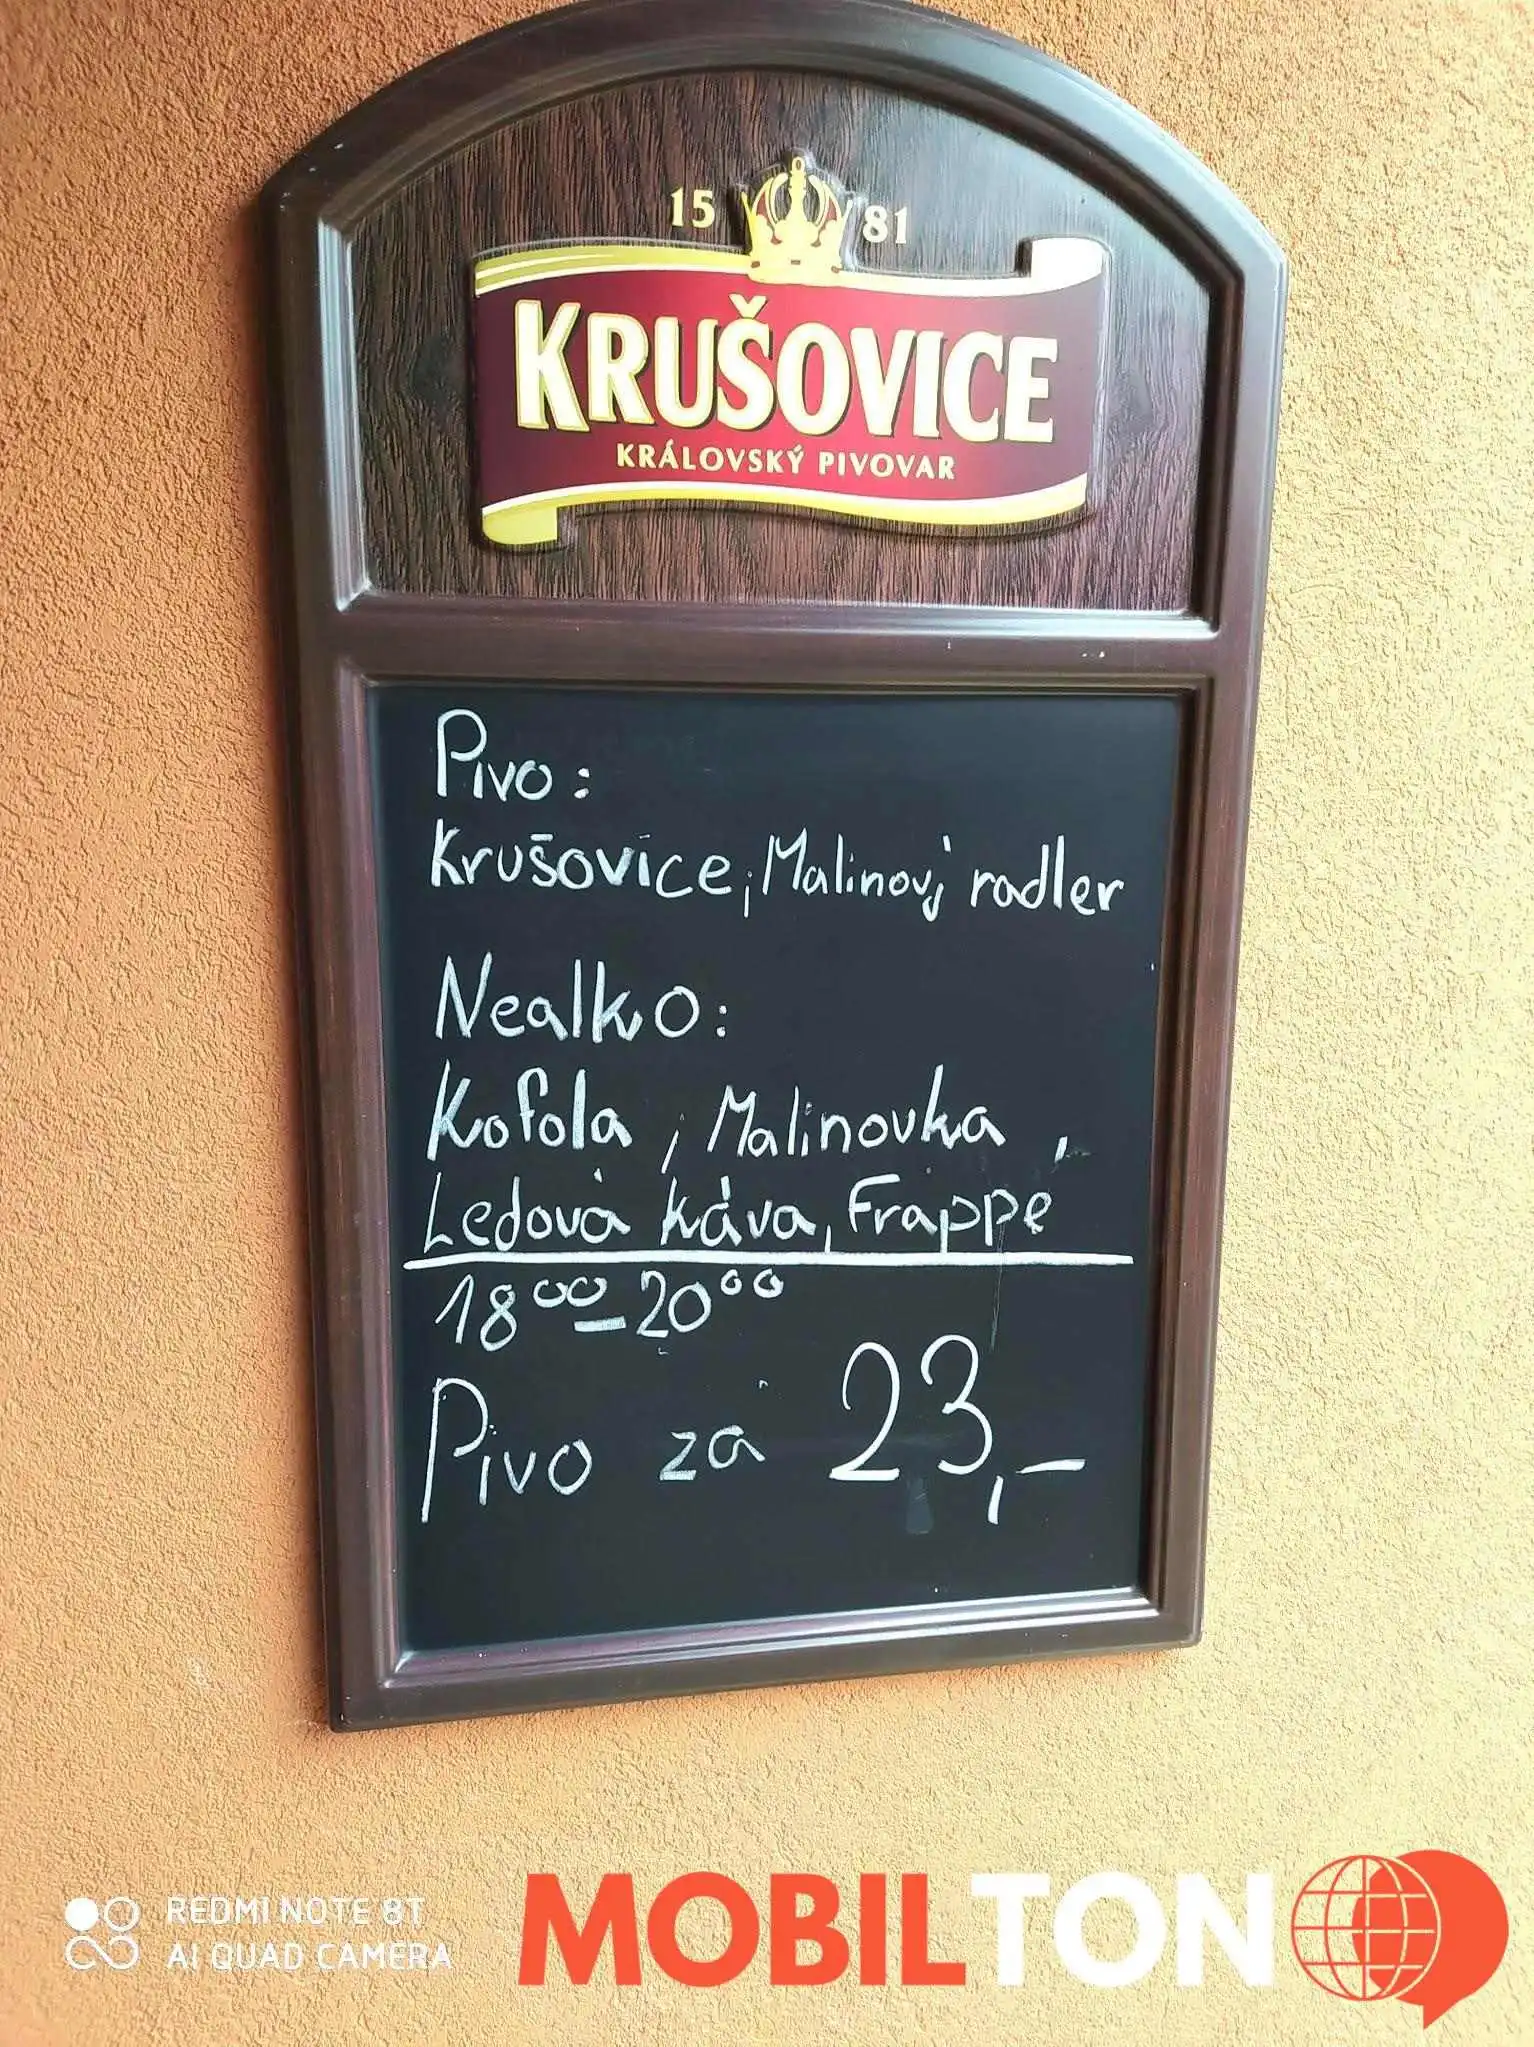 15 81
KRUŠOVICE
KRÁLOVSKÝ PIVOVAR
Pivo:
Krušovice, Malinový radler
Nealko:
Kofola, Malinovka,
Ledová káva, Frappé
18⁰⁰-20⁰⁰
Pivo za 23,-
REDMI NOTE 8T
AI QUAD CAMERA
MOBILTON